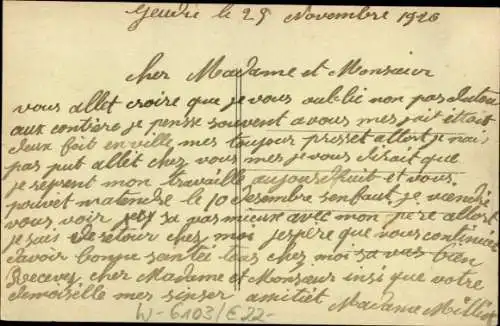 Jeudi le 25 Novembre 1926
Cher Madame et Monsieur
vous allet croire que je vous oublie non pas du tou
aux contière je pense souvent a vous mes jait etait
deux foit en ville mes toujour presset alort je n'ais
pas put allet chez vous mes je vous disait que
je reprent mon travaille aujourdhuit et vous
pouvet matendre le 10 desembre senfaut je viendre
vous voir sa vas mieux avec mon père alort
je sais de retour chez moi j'espère que vous continuée
davoir bonne santée tous chez moi sa vas bien
Recevez cher Madame et Monsieur insi que votre
demoiselle mes sinser amitiet
Madame
W-6103/E22-